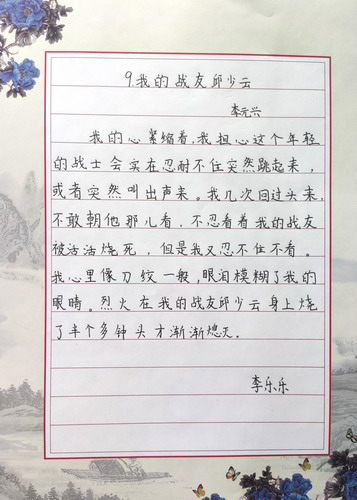 9.我的战友邱少云
李元兴
我的心紧缩着,我担心这个年轻
的战士会实在忍耐不住突然跳起来,
或者突然叫出声来。我几次回过头来,
不敢朝他那儿看,不忍看着我的战友
被活活烧死,但是我又忍不住不看。
我心里像刀绞一般,眼泪模糊了我的
眼睛。烈火在我的战友邱少云身上烧
了半个多钟头才渐渐熄灭.
李乐乐